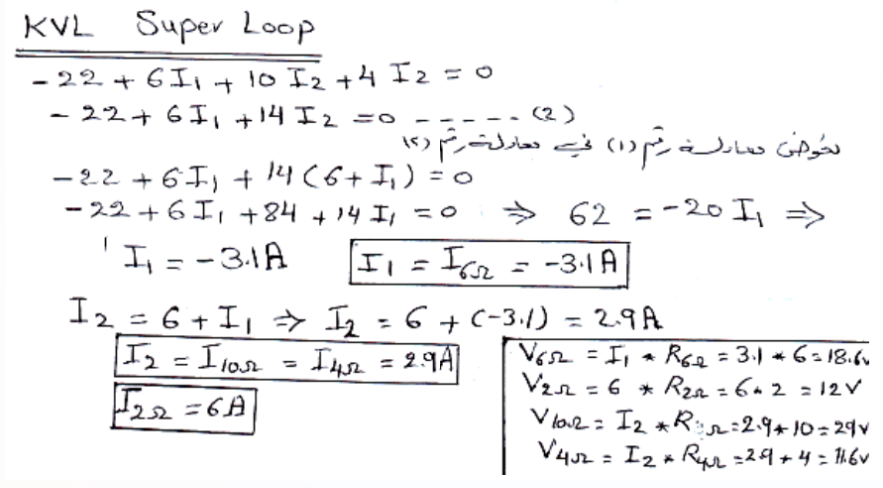 KVL Super Loop
-22 + 6I₁ + 10 I₂ + 4 I₂ = 0
-22 + 6 I₁ + 14 I₂ = 0 ------ (2)
نعوض معادلة رقم (١) في معادلة رقم (٢)
-22 + 6I₁ + 14 (6 + I₁) = 0
-22 + 6 I₁ + 84 + 14 I₁ = 0 ⇒ 62 = -20 I₁ ⇒
I₁ = -3.1A
I₁ = I6Ω = -3.1A
I₂ = 6 + I₁ ⇒ I₂ = 6 + (-3.1) = 2.9A
I₂ = I10Ω = I4Ω = 2.9A
I2Ω = 6A
V6Ω = I₁ * R6Ω = 3.1 * 6 = 18.6v
V2Ω = 6 * R2Ω = 6 * 2 = 12V
V10Ω = I₂ * R Ω = 2.9 * 10 = 29V
V4Ω = I₂ * R4Ω = 2.9 * 4 = 11.6v